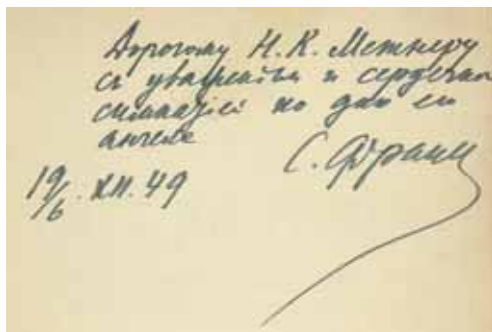 Дорогому Н. К. Метнеру
съ уваженіем и сердечной
симпатіей ко дню его
ангела
С. Франк
19/6. XII. 49